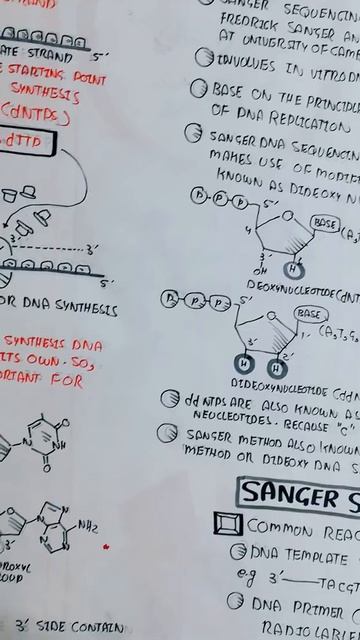 STRAND
5'
ATE STRAND
STARTING POINT
SYNTHESIS
(dNTPs)
dTTP
3'
3'
5'
OR DNA SYNTHESIS
SYNTHESIS DNA
ITS OWN. SO,
ORTANT FOR
O
NH
O
O
N
N
N
N
NH2
3'
ROXYL
OUP
3' SIDE CONTAIN
SANGER SEQUENCING
FREDRICK SANGER AN
AT UNIVERSITY OF CAM
INVOLVES IN VITRO DN
BASE ON THE PRINCIPLE
OF DNA REPLICATION
SANGER DNA SEQUENCIN
MAKES USE OF MODIF
KNOWN AS DIDEOXY N
P P P 5'
O
BASE (A,
4
3'
OH
H
DEOXYNUCLEOTIDE (dNT
P P P 5'
O
BASE
1' (A,T,G,
3'
2'
H H
DIDEOXYNUCLEOTIDE (ddN
dd NTPS ARE ALSO KNOWN AS
NEUCLEOTIDES. BECAUSE "C"
SANGER METHOD ALSO KNOWN
METHOD OR DIDEOXY DNA S
SANGER S
COMMON REAC
DNA TEMPLATE
e.g 3' TACGT
DNA PRIMER (
RADIOLAB